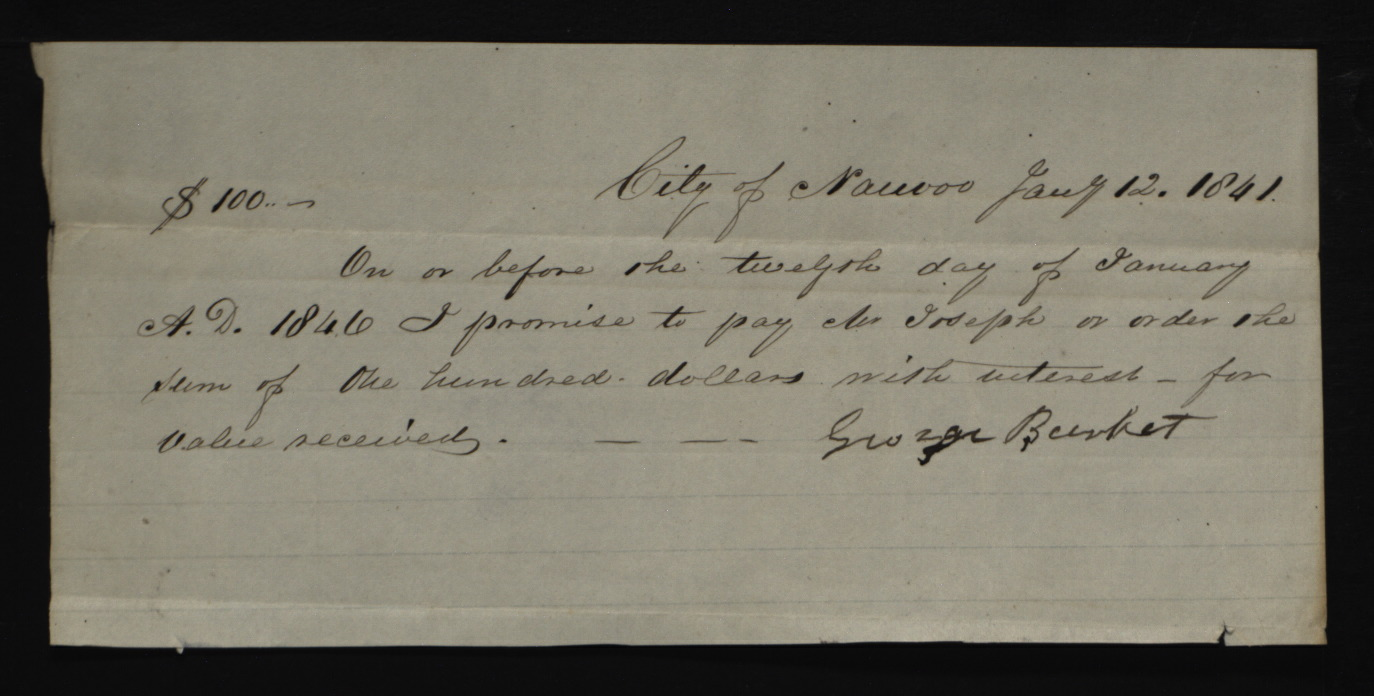 $100..— City of Nauvoo Jany 12. 1841.
On or before the twelfth day of January
A.D. 1846 I promise to pay Mr Joseph or order the
sum of One hundred dollars with interest – for
value received. — — — George Burket